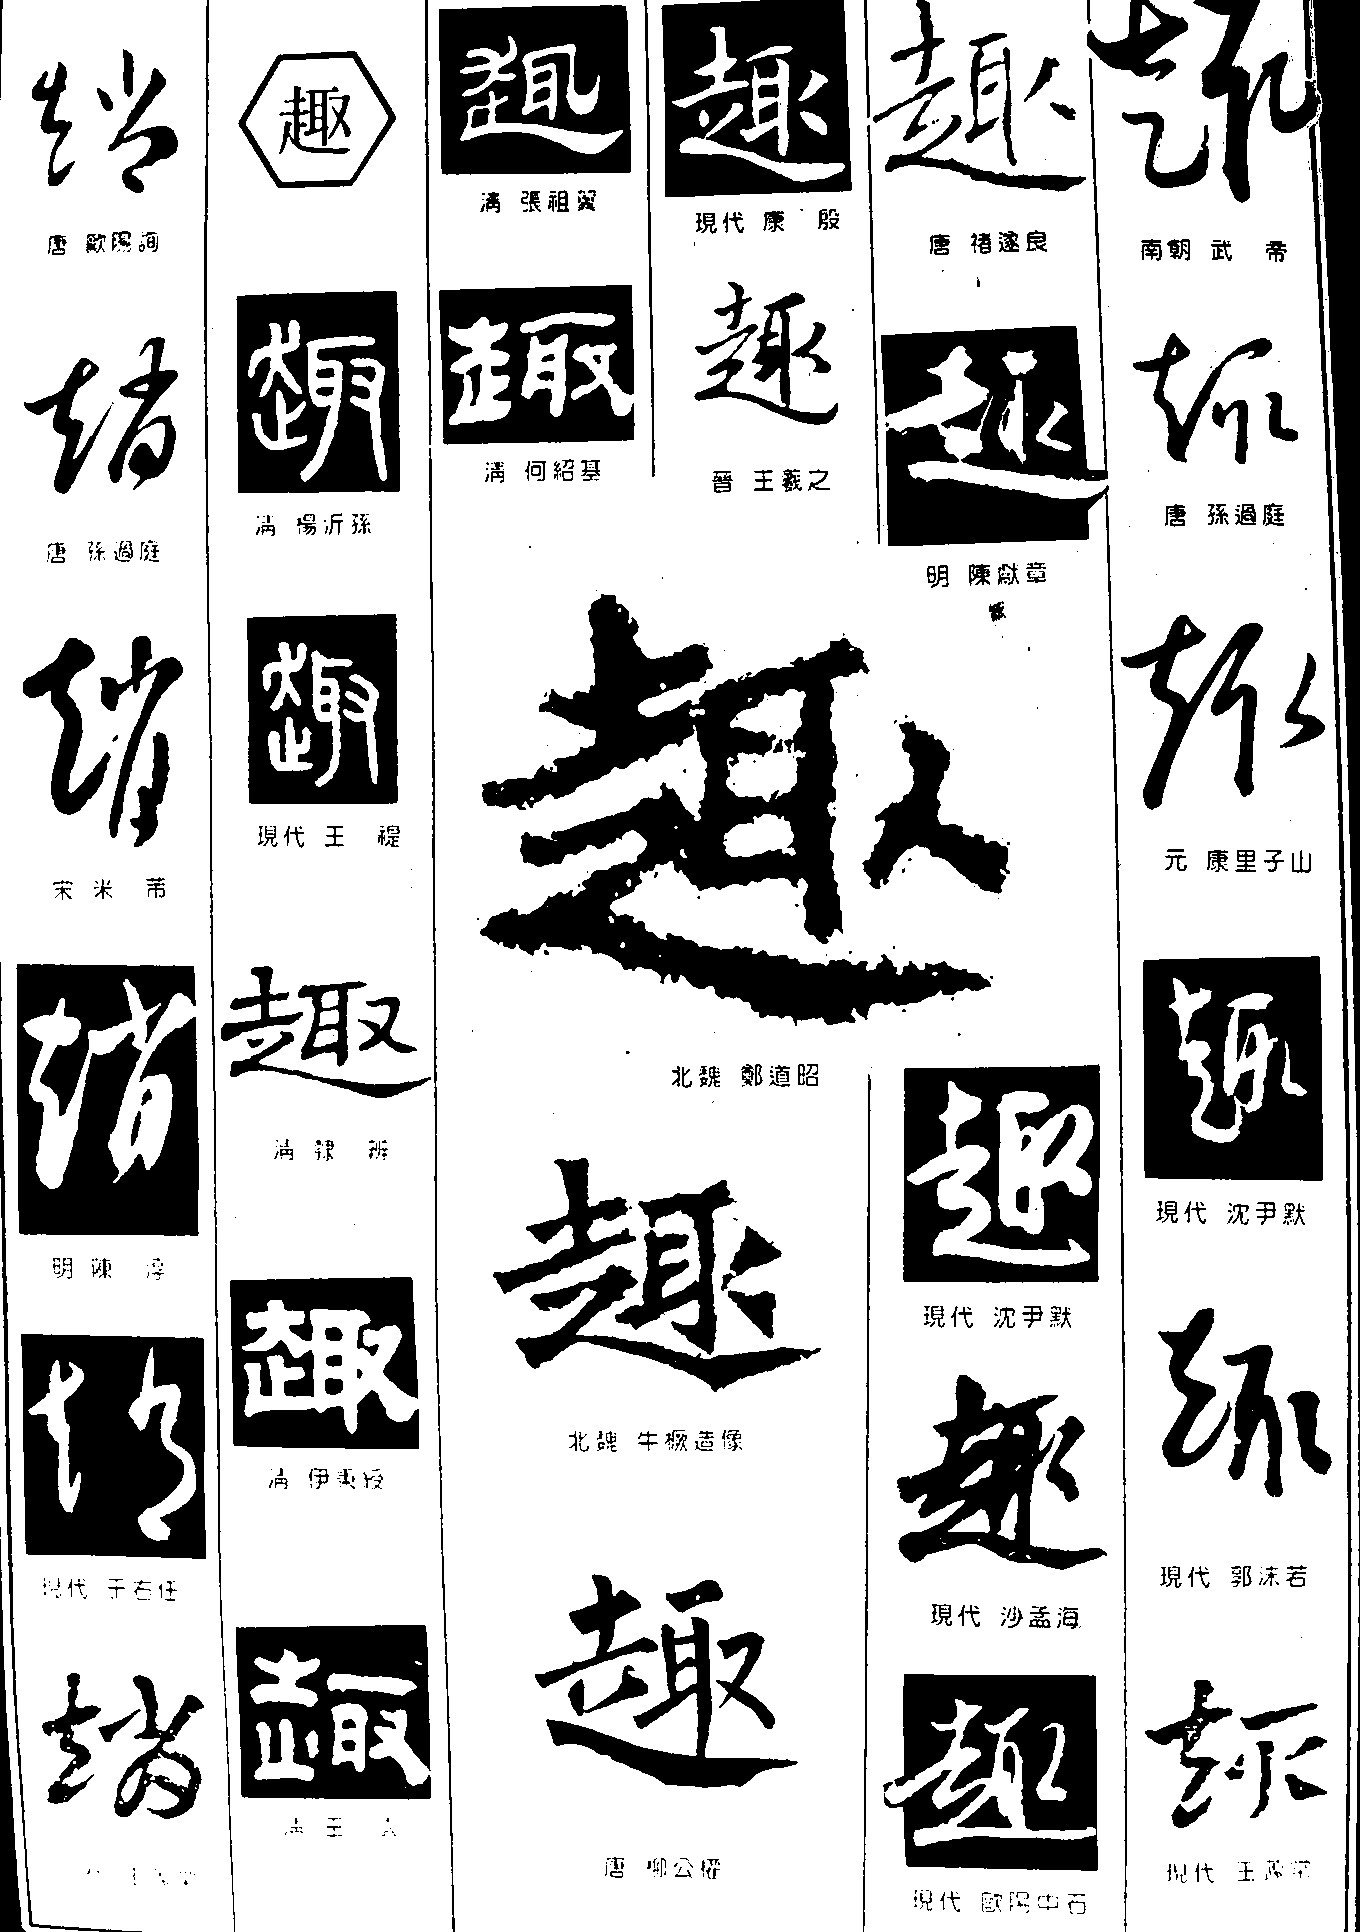 趙
唐 歐陽詢
趙
唐 孫過庭
趙
宋 米 芾
趙
明 陳 淳
趙
現代 于右任
趙
趣
趣
清 楊沂孫
趣
現代 王 禔
趣
清 隸 辨
趣
清 伊秉綬
趣
清 王
趣
清 張祖翼
趣
清 何紹基
趣
現代 康 殷
趣
晉 王羲之
趣
北魏 鄭道昭
趣
北魏 牛橛造像
趣
唐 柳公權
趣
唐 褚遂良
趣
明 陳獻章
趣
現代 沈尹默
趣
現代 沙孟海
趣
現代 歐陽中石
趣
南朝 武 帝
趣
唐 孫過庭
趣
元 康里子山
趣
現代 沈尹默
趣
現代 郭沫若
趣
現代 王蘧常